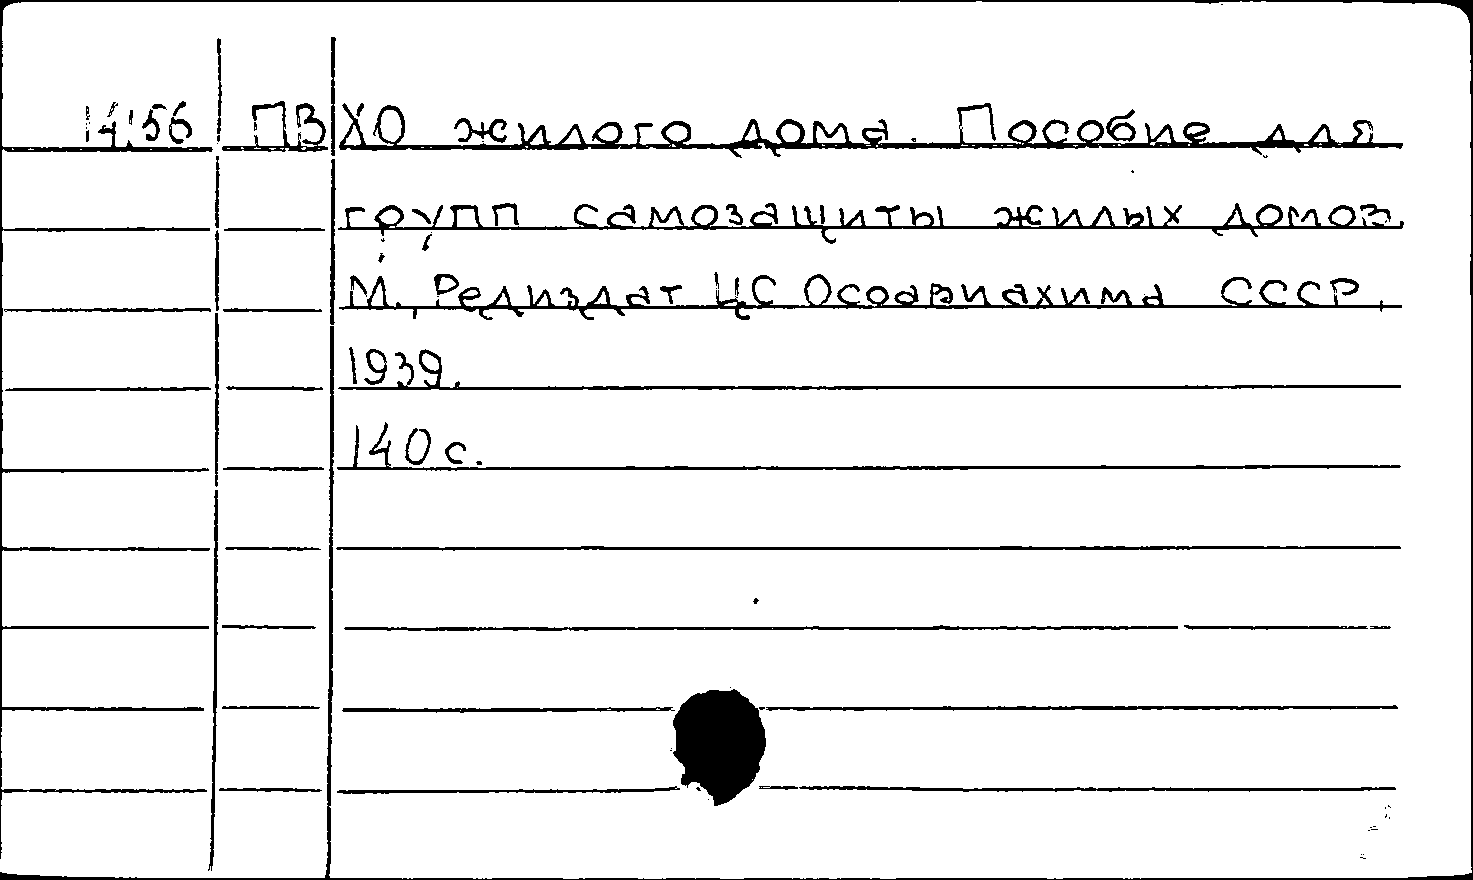 14156 ПВХО жилого дома. Пособие для
групп самозащиты жилых домов.
М., Редиздат ЦС Осоавиахима СССР,
1939.
140 с.